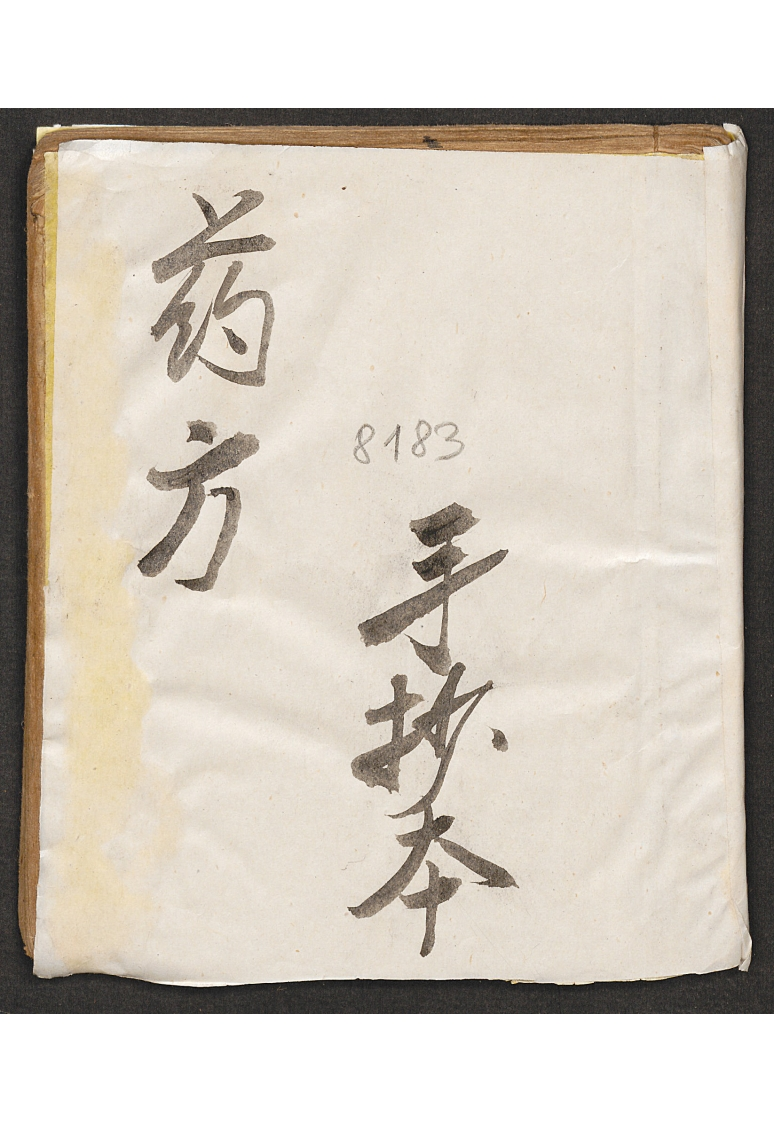 药方
8183
手抄本